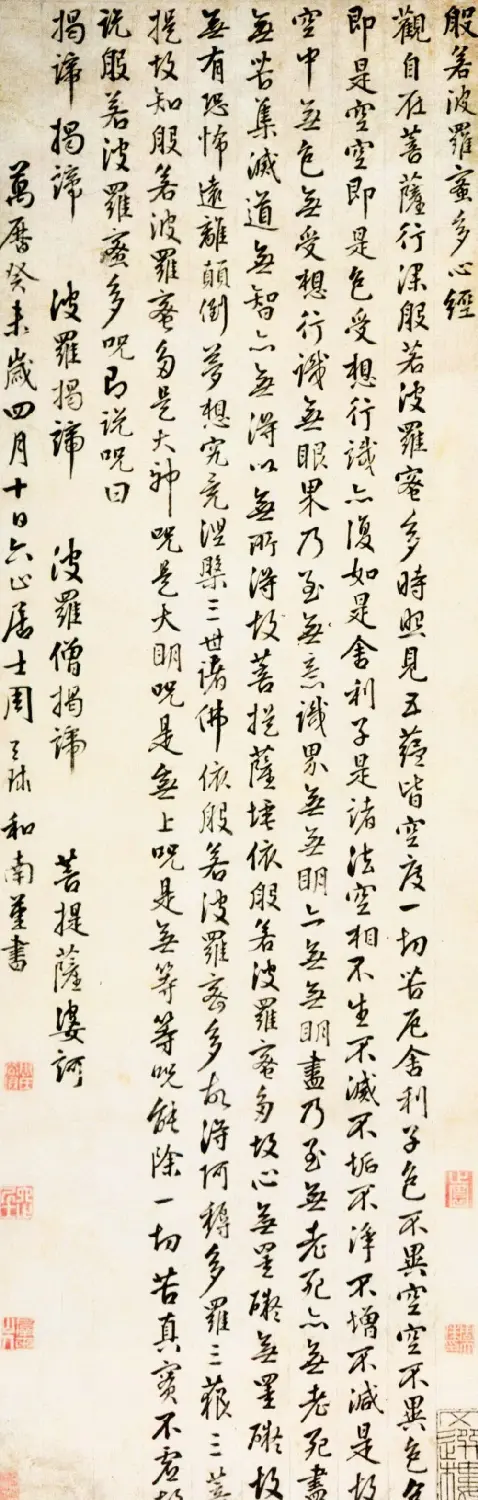 般若波羅蜜多心經
觀自在菩薩行深般若波羅蜜多時照見五蘊皆空度一切苦厄舍利子色不異空空不異色色
即是空空即是色受想行識亦復如是舍利子是諸法空相不生不滅不垢不淨不增不減是故
空中無色無受想行識無眼界乃至無意識界無無明亦無無明盡乃至無老死亦無老死盡
無苦集滅道無智亦無得以無所得故菩提薩埵依般若波羅蜜多故心無罣礙無罣礙故
無有恐怖遠離顛倒夢想究竟涅槃三世諸佛依般若波羅蜜多故得阿耨多羅三藐三菩
提故知般若波羅蜜多是大神咒是大明咒是無上咒是無等等咒能除一切苦真實不虛故
說般若波羅蜜多咒即說咒曰
揭諦揭諦 波羅揭諦 波羅僧揭諦 菩提薩婆訶
萬曆癸未歲四月十日六止居士周天球和南謹書
文選樓